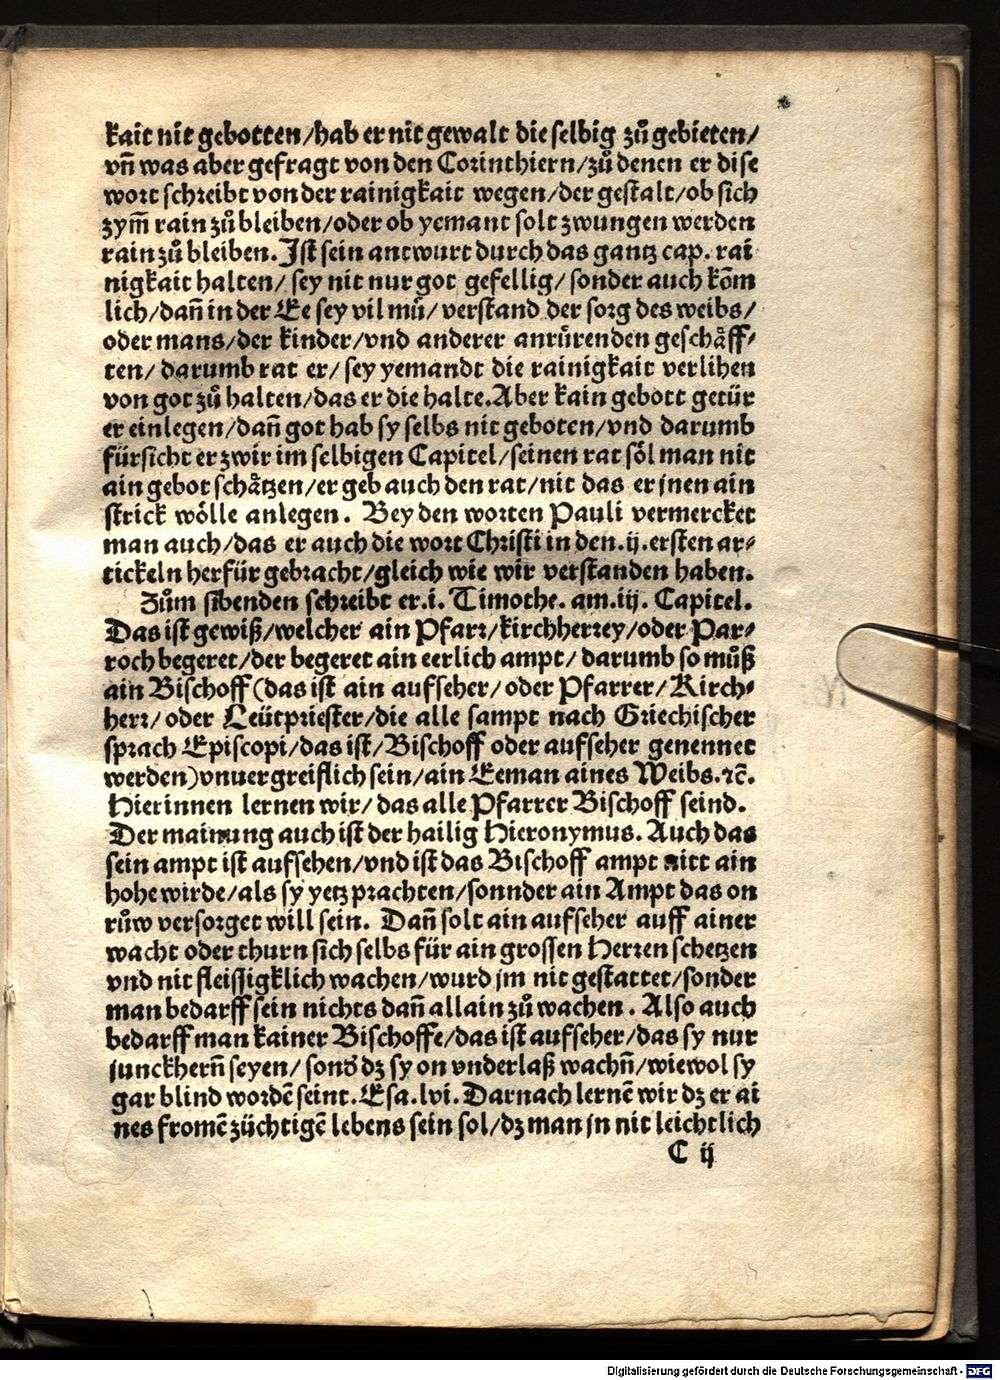 kait nit gebotten/hab er nit gewalt die selbig zů gebieten/
vñ was aber gefragt von den Corinthiern/zů denen er dise
wort schreibt von der rainigkait wegen/der gestalt/ob sich
zym̃ rain zů bleiben/oder ob yemant solt zwungen werden
rain zů bleiben. Ist sein antwurt durch das gantz cap. rai
nigkait halten/ sey nit nur got gefellig/ sonder auch kõm
lich/dañ in der Ee sey vil mü/ verstand der sorg des weibs/
oder mans/der kinder/vnd anderer anrürenden geschäff⸗
ten/ darumb rat er/ sey yemandt die rainigkait verlihen
von got zů halten/das er die halte. Aber kain gebott getür
er einlegen/dañ got hab sy selbs nit geboten/vnd darumb
fürsicht er zwir im selbigen Capitel/seinen rat söl man nit
ain gebot schätzen/er geb auch den rat/nit das er jnen ain
strick wölle anlegen. Bey den worten Pauli vermercket
man auch/das er auch die wort Christi in den .ij. ersten ar⸗
tickeln herfür gebracht/gleich wie wir verstanden haben.
Zům sibenden schreibt er .i. Timothe. am .iij. Capitel.
Das ist gewiß/welcher ain Pfarr/kirchherrey/oder Par⸗
roch begeret/der begeret ain eerlich ampt/ darumb so můß
ain Bischoff (das ist ain aufseher/ oder Pfarrer/ Kirch⸗
herr/ oder Leütpriester/die alle sampt nach Griechischer
sprach Episcopi/das ist/Bischoff oder aufseher genennet
werden) vnuergreiflich sein/ain Eeman aines Weibs. ꝛc̃.
Hierinnen lernen wir/ das alle Pfarrer Bischoff seind.
Der mainung auch ist der hailig Hieronymus. Auch das
sein ampt ist aufsehen/vnd ist das Bischoff ampt nitt ain
hohe wirde/als sy yetz prachten/sonnder ain Ampt das on
růw versorget will sein. Dañ solt ain aufseher auff ainer
wacht oder thurn sich selbs für ain grossen Herren schetzen
vnd nit fleissigklich wachen/wurd jm nit gestattet/sonder
man bedarff sein nichts dañ allain zů wachen. Also auch
bedarff man kainer Bischoffe/das ist aufseher/das sy nur
junckherñ seyen/ sond̃ dz sy on vnderlaß wachñ/wiewol sy
gar blind wordẽ seint. Esa. lvi. Darnach lernẽ wir dz er ai
nes fromẽ züchtigẽ lebens sein sol/dz man jn nit leichtlich
C ij
Digitalisierung gefördert durch die Deutsche Forschungsgemeinschaft - DFG